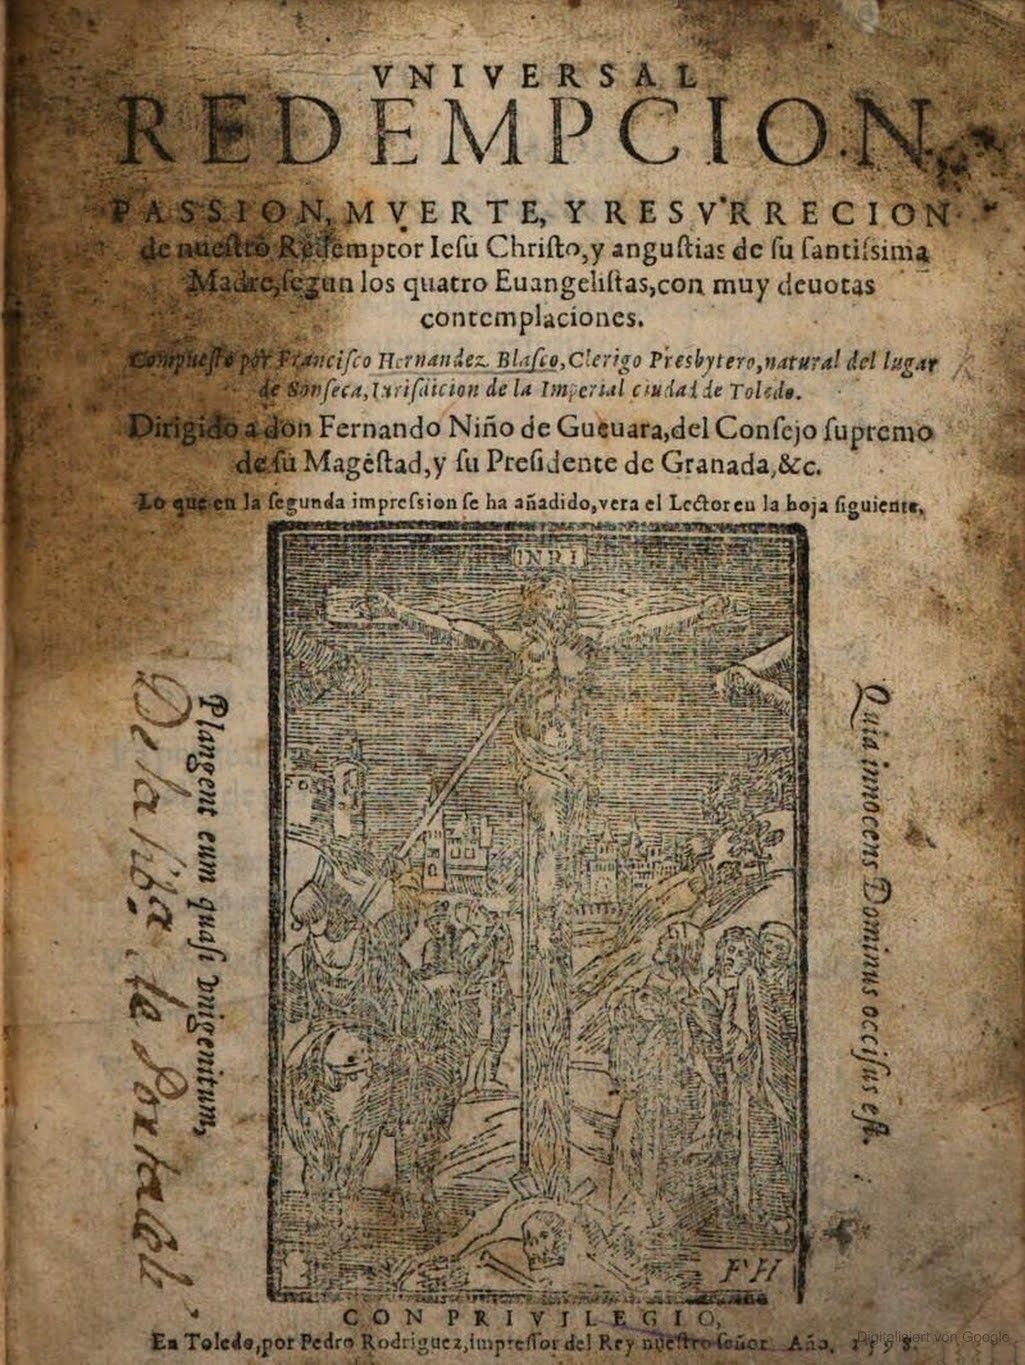 VNIVERSAL
REDEMPCION,
PASSION, MVERTE, Y RESVRRECION
de nueſtro Redemptor Ieſu Chriſto, y anguſtias de ſu ſantiſsima
Madre, ſegun los quatro Euangeliſtas, con muy deuotas
contemplaciones.
Compueſto por Franciſco Hernandez Blaſco, Clerigo Presbytero, natural del lugar
de Sonſeca, Iuriſdicion de la Imperial ciudad de Toledo.
Dirigido a don Fernando Niño de Gueuara, del Conſejo ſupremo
de ſu Mageſtad, y ſu Preſidente de Granada, &c.
Lo que en la ſegunda impreſsion ſe ha añadido, vera el Lector en la hoja ſiguiente.
INRI
Plangent eum quaſi vnigenitum,
Quia innocens Dominus occiſus eſt.
De la
FH
CON PRIVILEGIO,
En Toledo, por Pedro Rodriguez, impreſſor del Rey nueſtro ſeñor. Año, 1598.
Digitalisiert von Google